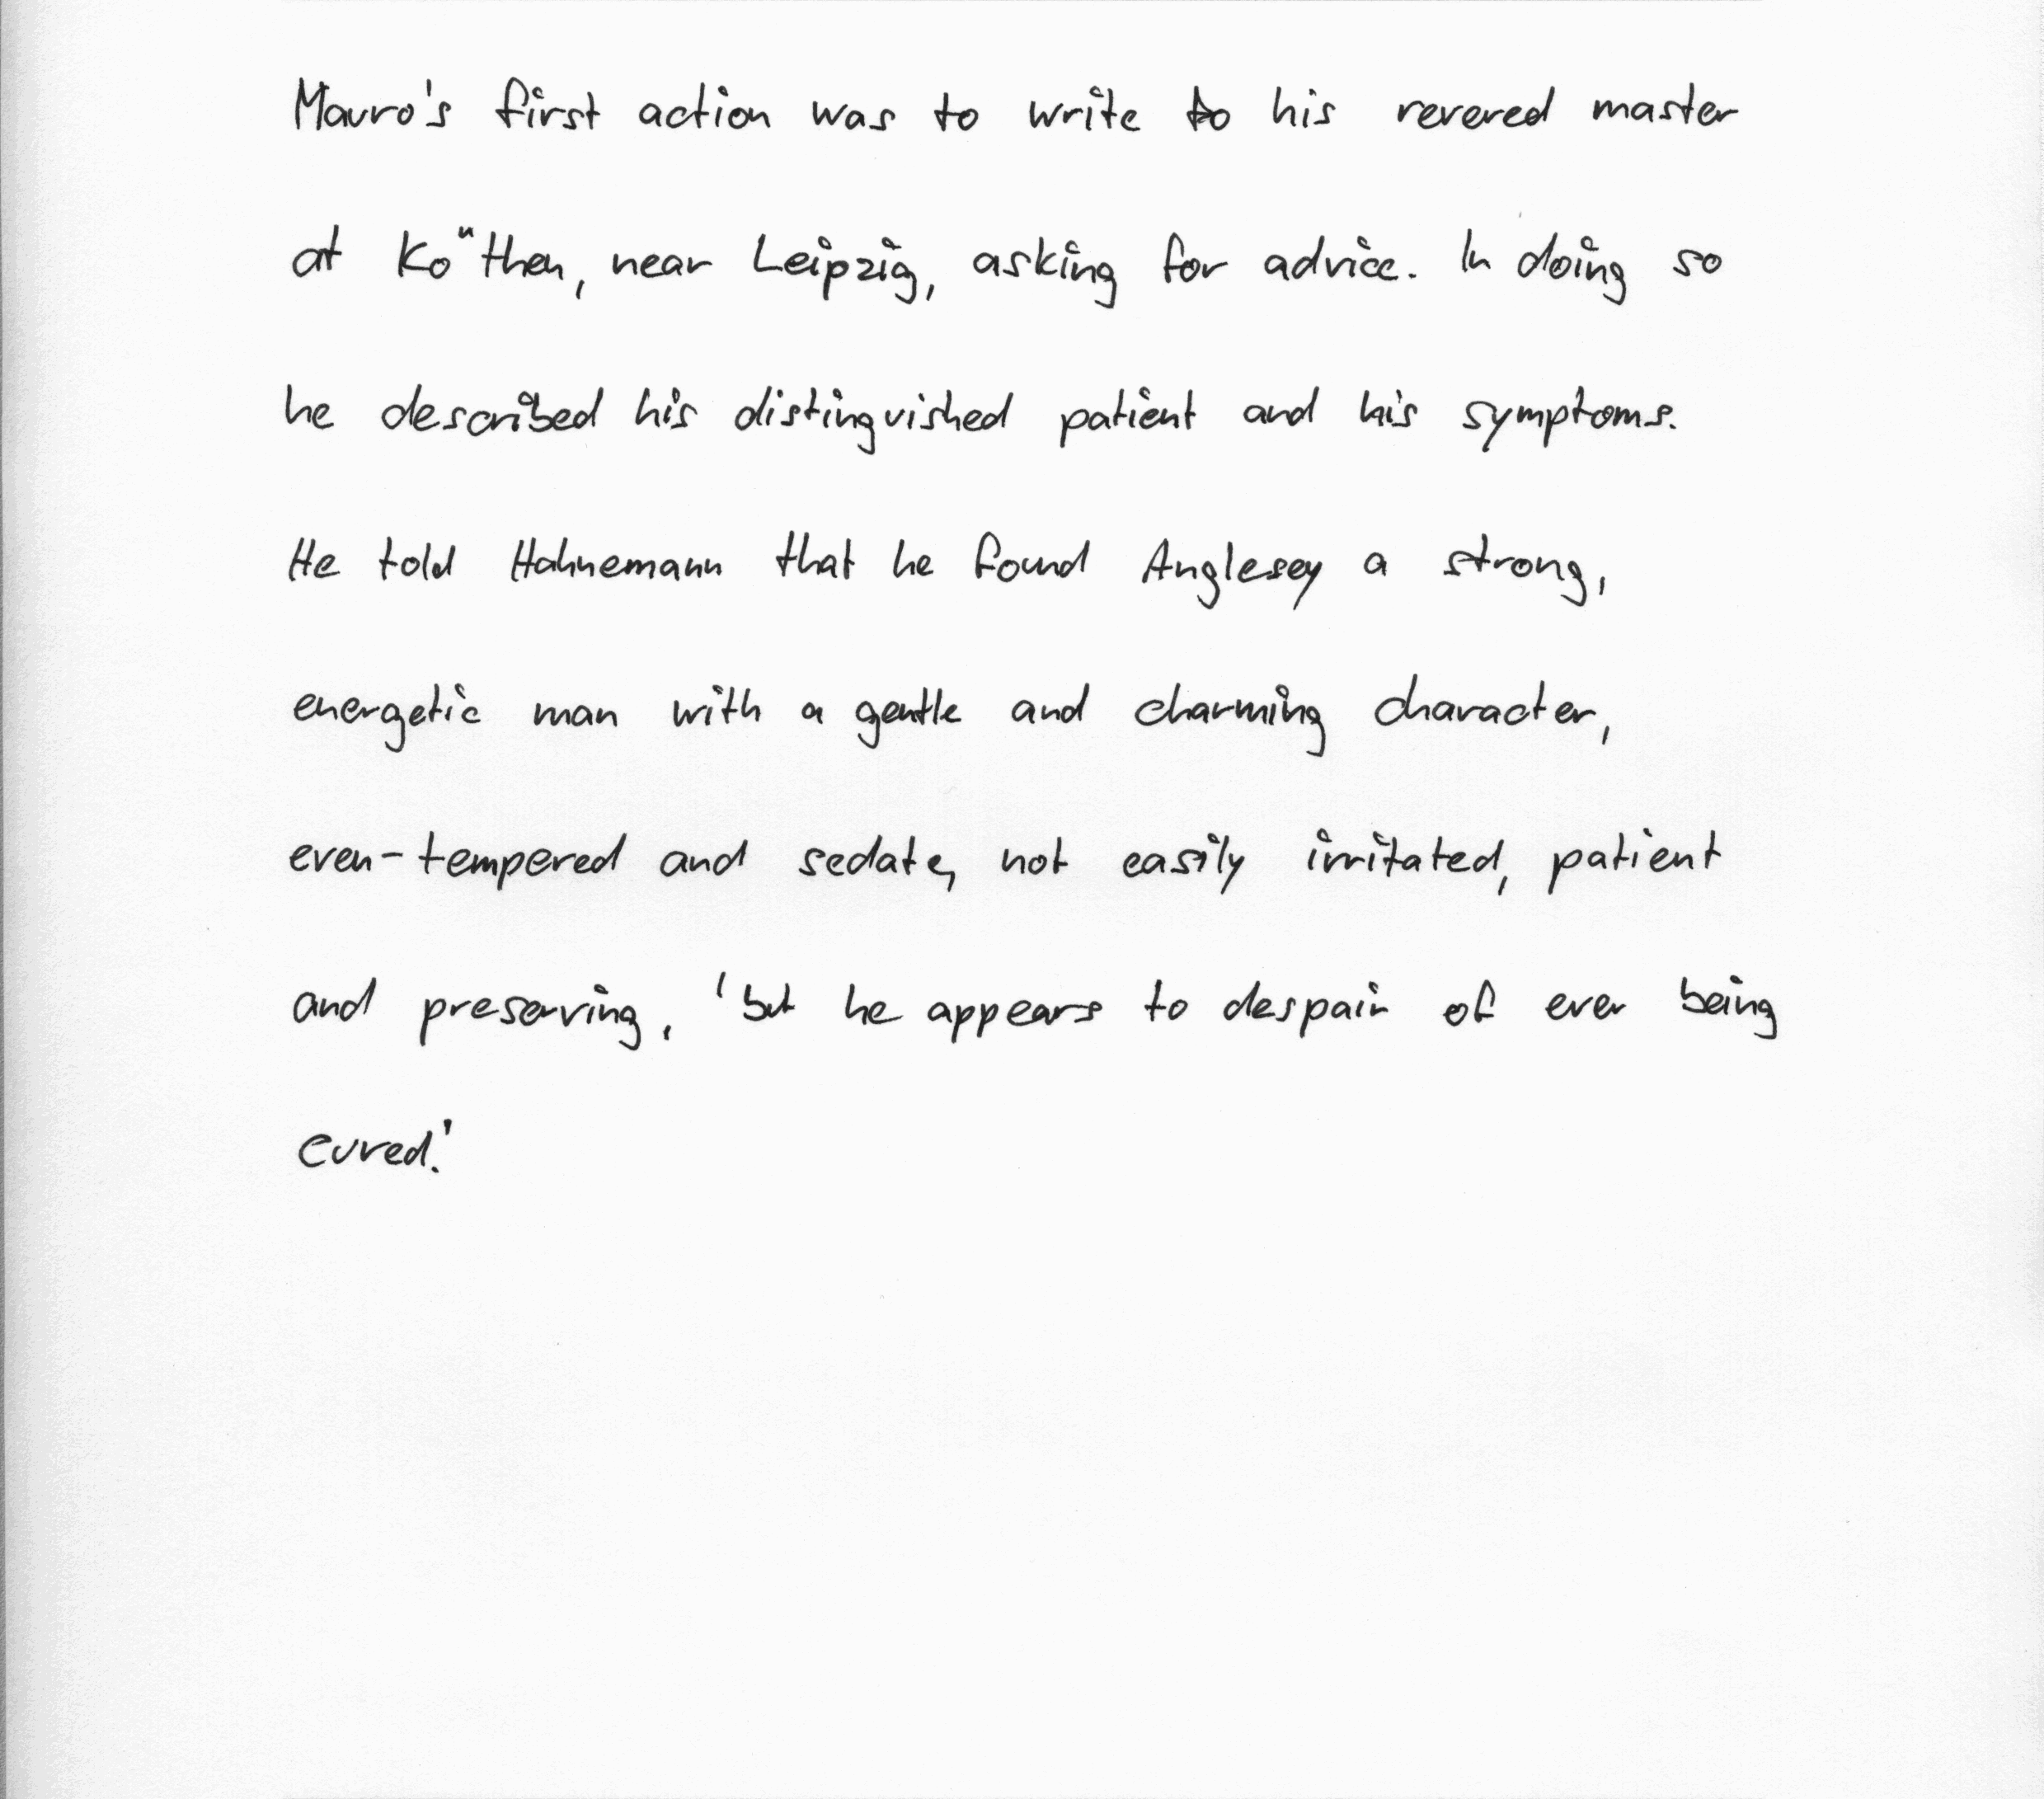 Mauro's first action was to write to his revered master
at Ko"then, near Leipzig, asking for advice. In doing so
he described his distinguished patient and his symptoms.
He told Hahnemann that he found Anglesey a strong,
energetic man with a gentle and charming character,
even-tempered and sedate, not easily irritated, patient
and preserving, 'but he appears to despair of ever being
cured.'